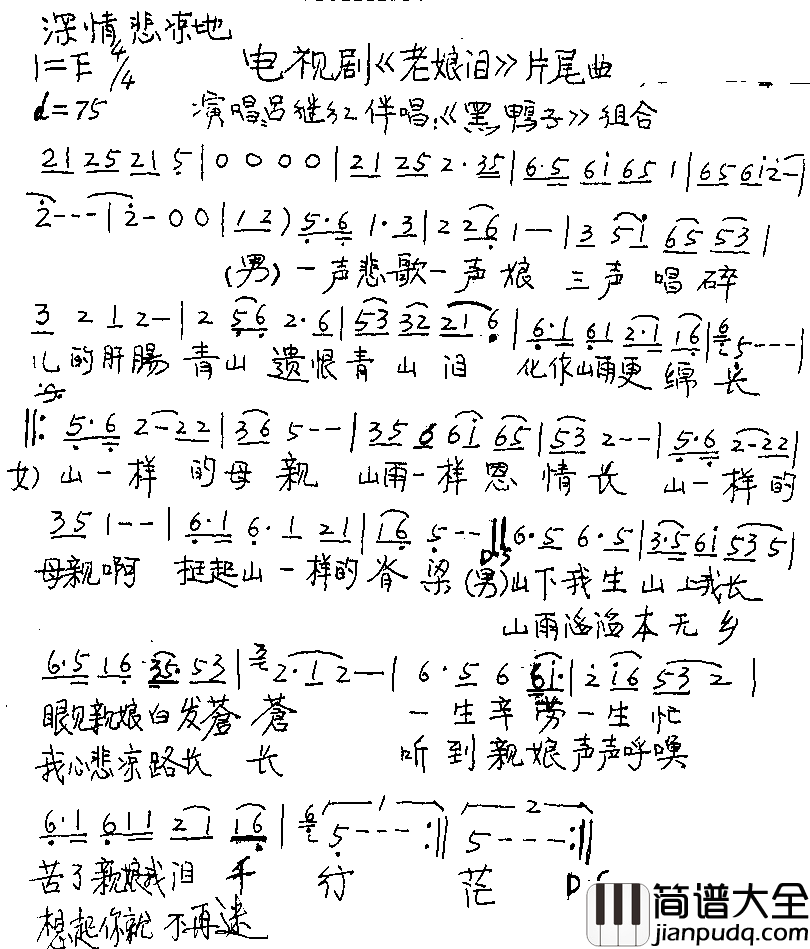 深情悲凉地
1=F 4/4
电视剧《老娘泪》片尾曲
♩=75
演唱:吕继红 伴唱:《黑鸭子》组合
21 25 21 5 | 0 0 0 0 | 21 25 2·35 | 6·5 6i 65 1 | 65 6i 2- |
2--- | 2- 0 0 | 12) 5·6 1·3 | 2 26 1-- | 3 5i 65 53 |
(男)一声悲歌一声娘 三声唱碎
3 2 1 2- | 2 56 2·6 | 53 32 21 6 | 6·1 61 2·1 16 | 5--- |
儿的肝腸 青山遗恨青山泪 化作山雨更绵长
‖: 5·6 2-22 | 36 5-- | 35 6 6i 65 | 53 2-- | 5·6 2-22 |
女)山一样的母亲 山雨一样恩情长 山一样的
35 1-- | 6·1 6·1 21 | 16 5-- ‖ 6·5 6·5 | 3·5 6i 53 5 |
母亲啊 挺起山一样的脊梁 (男)山下我生山上我长
D.S
山雨滔滔本无乡
6·5 16 35· 53 | 2·1 2- | 6·5 6 6i· | 2 i6 53 2 |
眼见亲娘白发蒼蒼 一生辛劳一生忙
我心悲凉路长长 听到亲娘声声呼唤
6·1 611 21 16 | 1 5--- :‖ 2 5--- :‖
苦了亲娘我泪千行 茫 D.S
想起你就不再迷
简谱大全
jianpudq.com